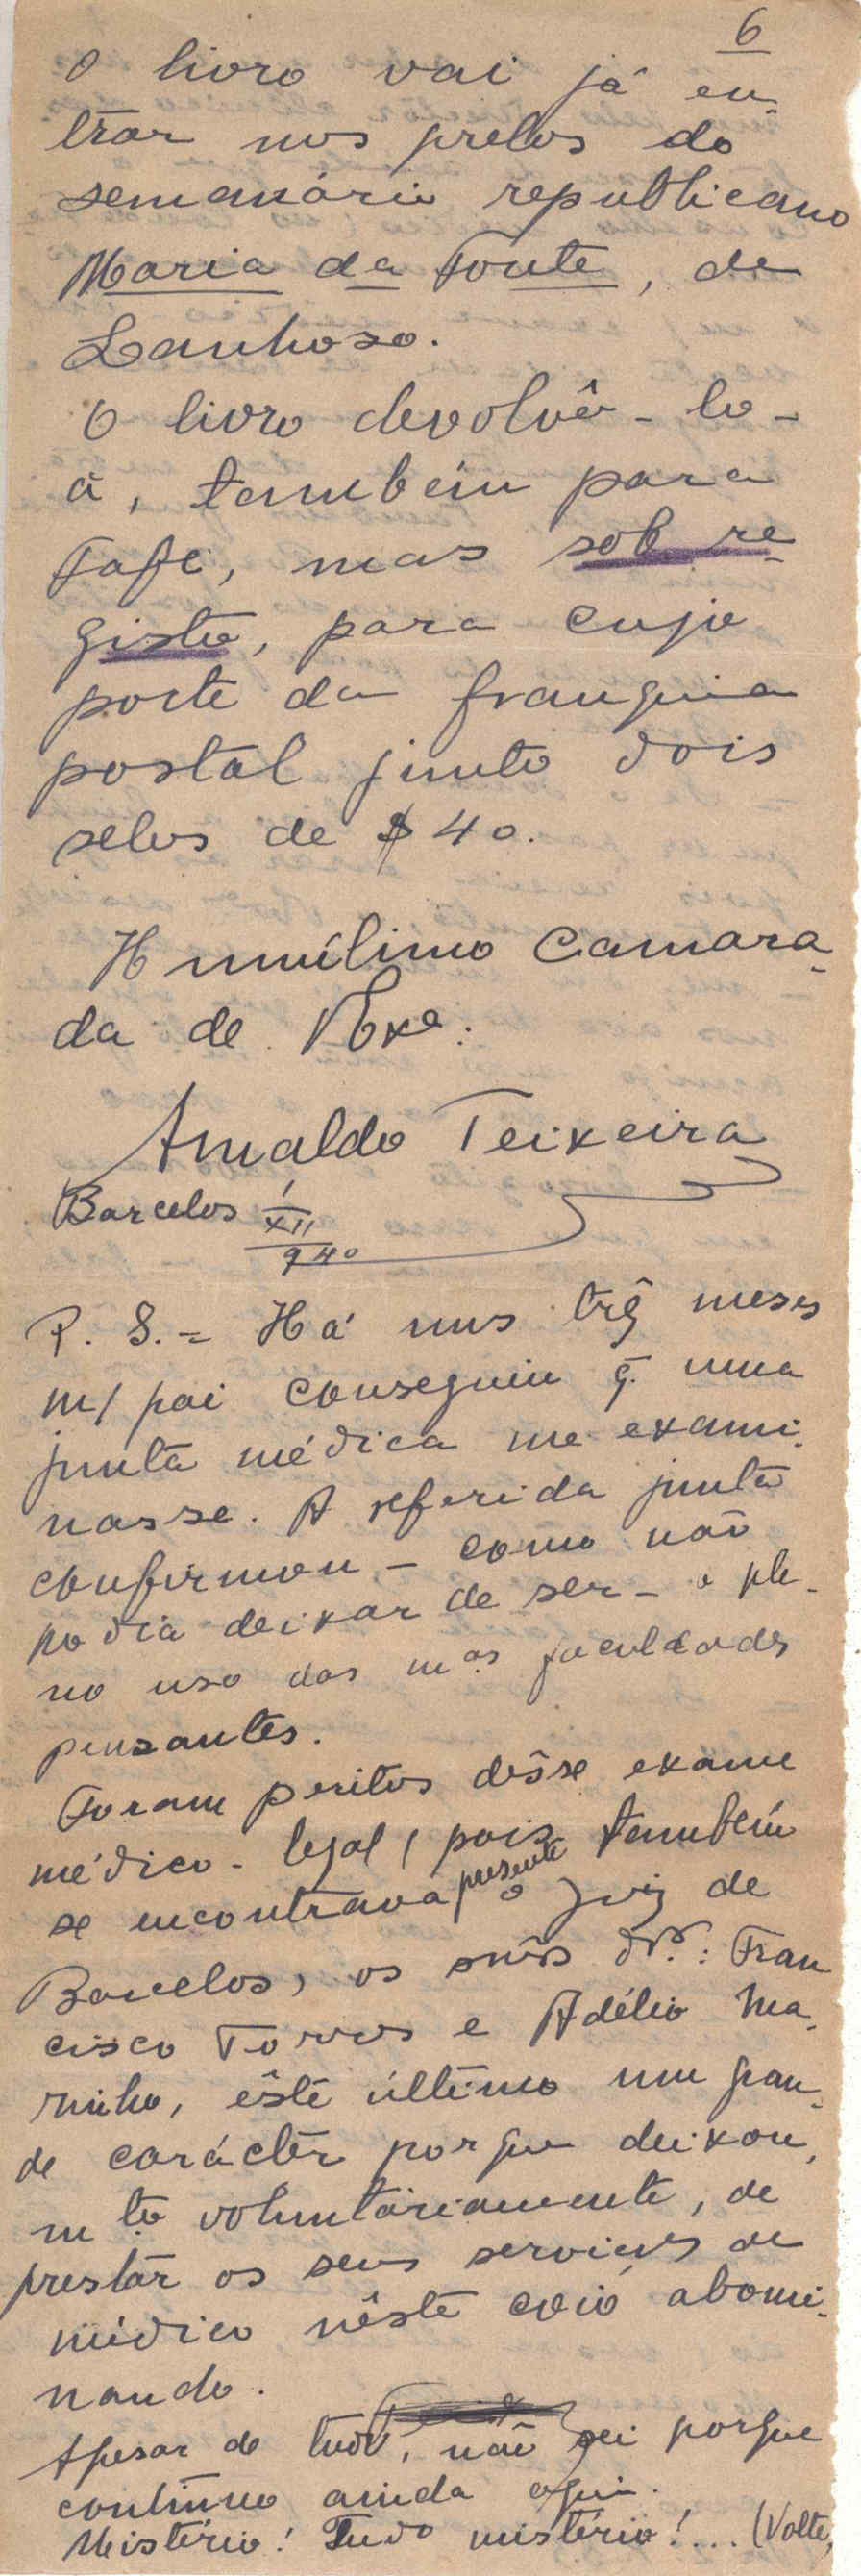 6
O livro vai já en-
trar nos prelos do
semanário republicano
Maria da Fonte, de
Lanhoso.
O livro devolvê-lo-
á, também para
Fafe, mas sob re-
gisto, para cujo
porte da franquia
postal junto dois
selos de $40.
Humílimo Camara-
da de V. Exª.:
Arnaldo Teixeira
Barcelos 1
XII
940
P. S. = Há uns três meses
m/ pai conseguiu q. uma
junta médica me exami-
nasse. A referida junta
confirmou - como não
podia deixar de ser - o ple-
no uso das mªs faculdades
pensantes.
Foram peritos dêsse exame
médico-legal, pois também
se encontrava presente o Juiz de
Barcelos, os snrs Drs.: Fran
cisco Torres e Adélio Ma-
rinho, êste último um gran-
de carácter porque deixou,
mto voluntáriamente, de
prestar os seus serviços de
médico nêste covo abomi-
nando.
Apesar de tudo, não sei porque
continuo ainda aqui.
Mistério! Tudo mistério!... (Volte,